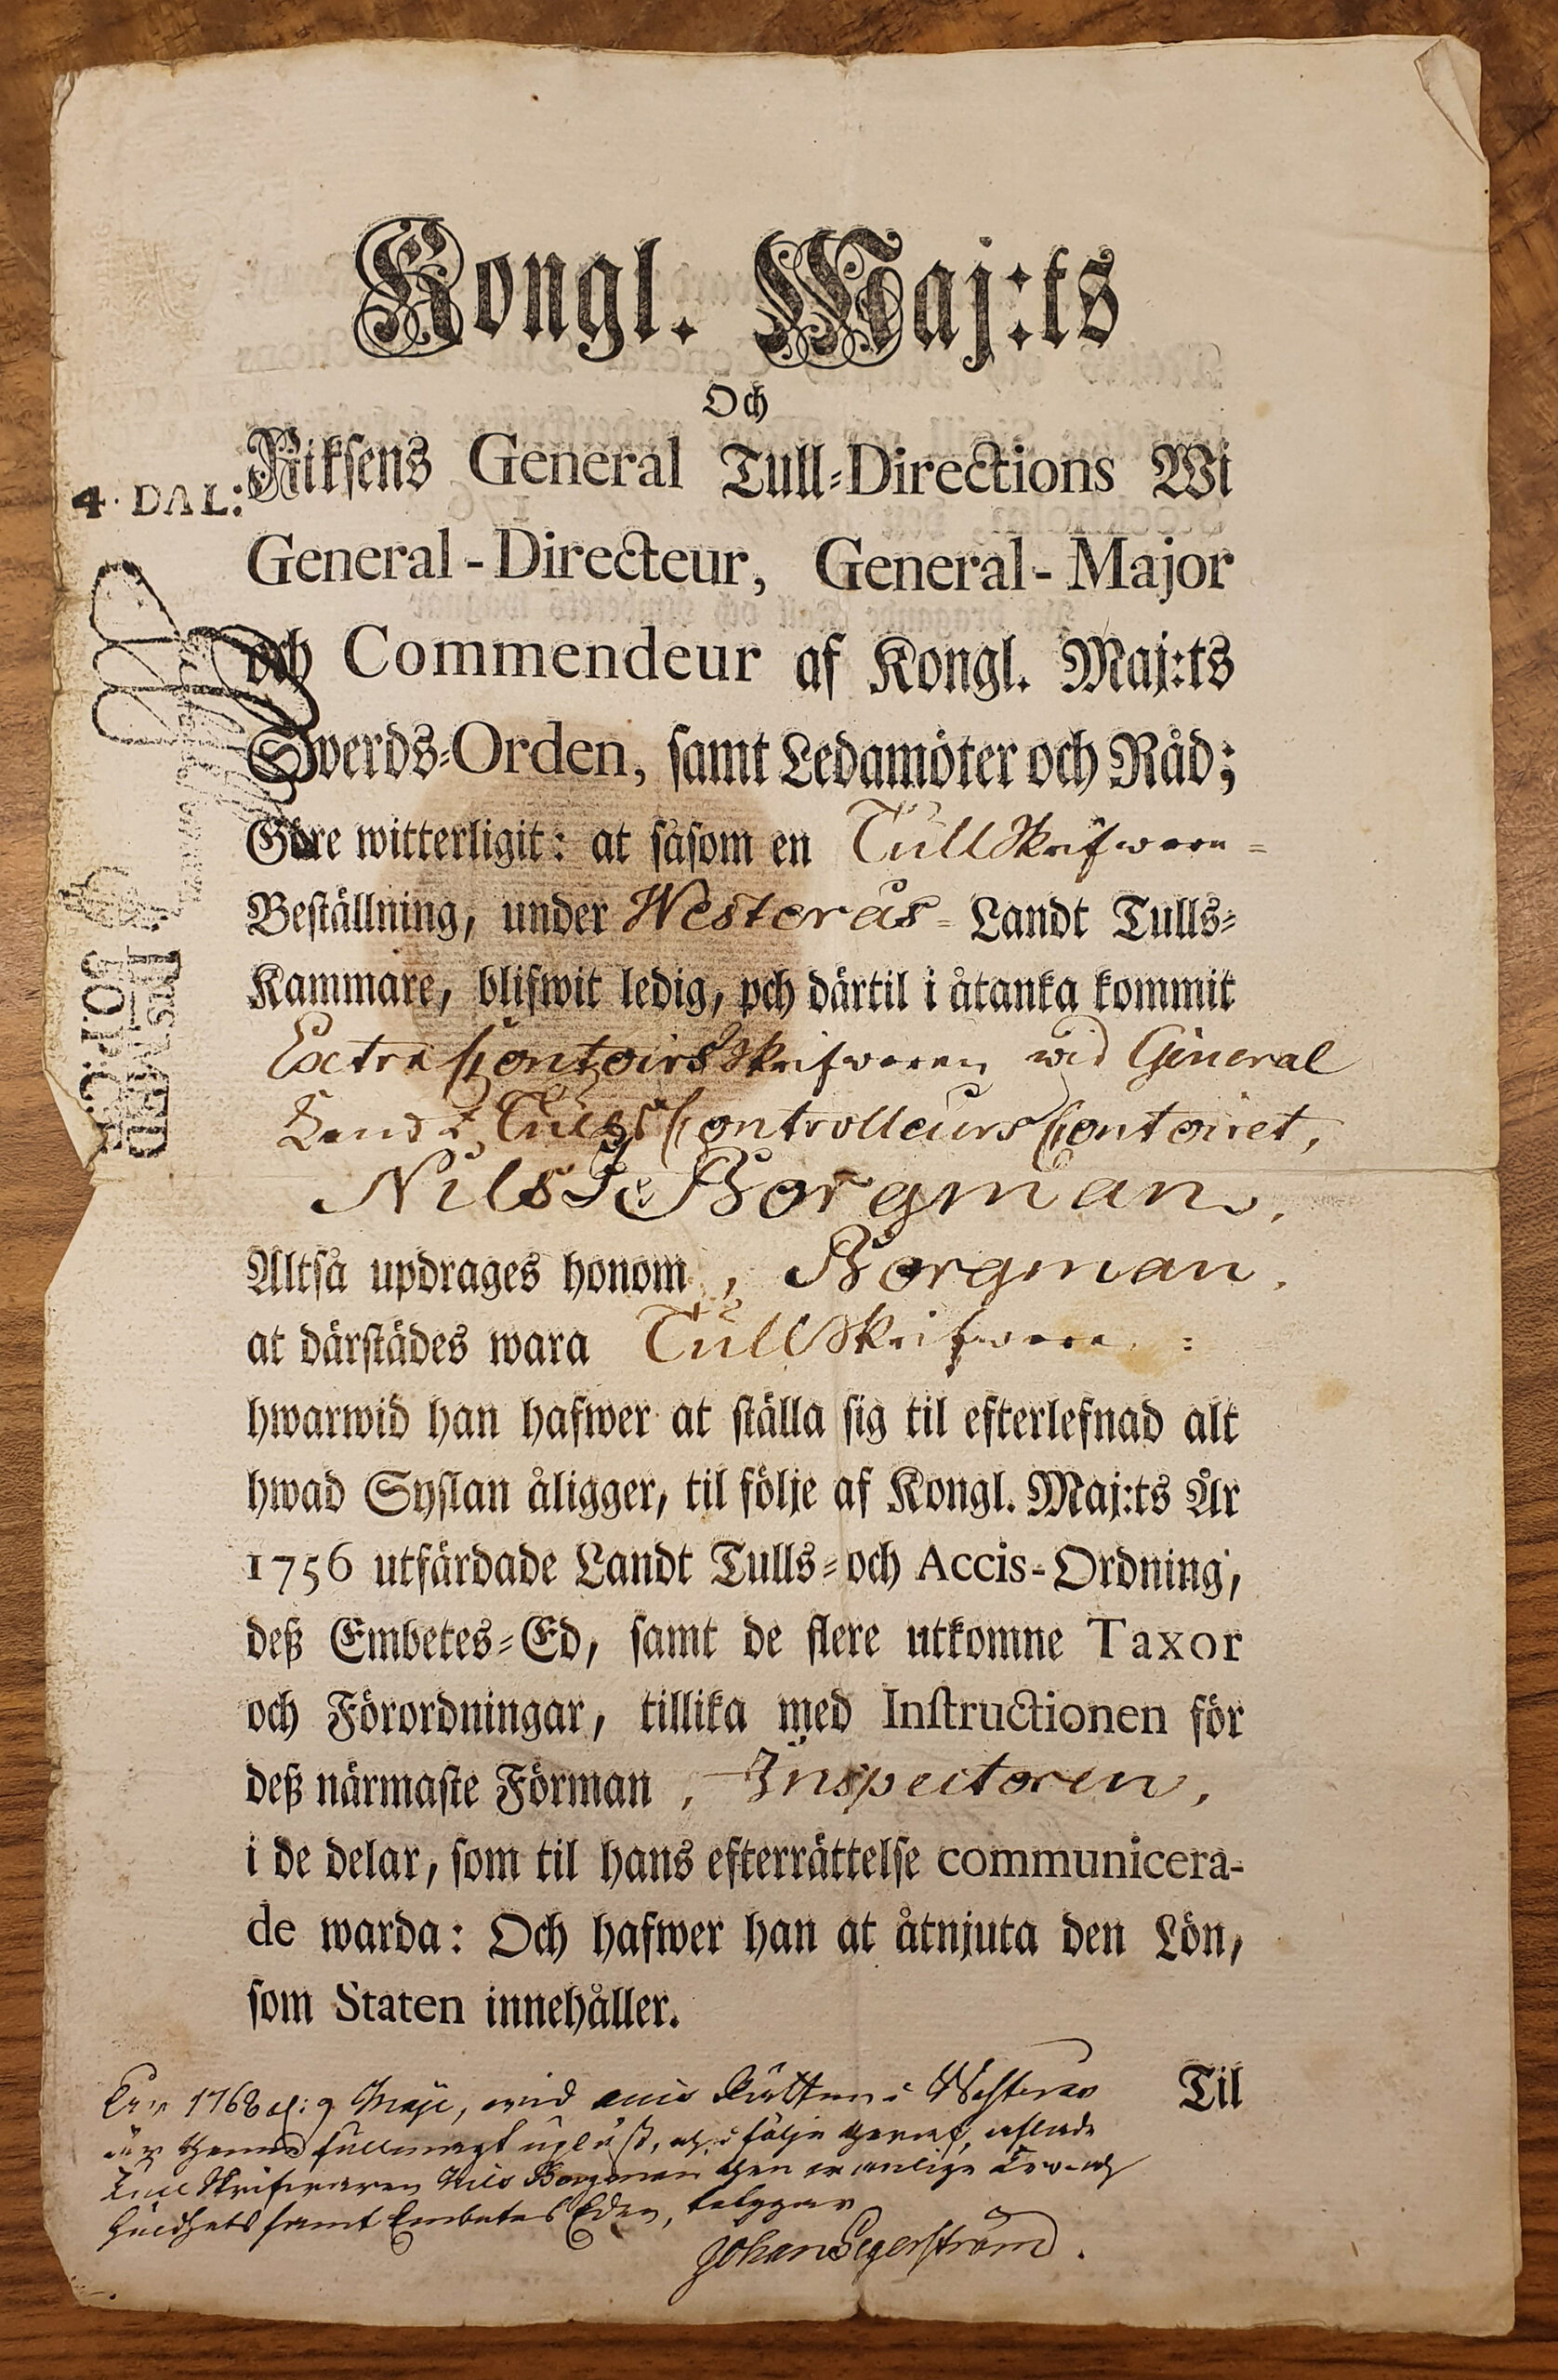 Kongl. Maj:ts
Och
Riksens General Tull-Directions Wi
4. DAL:
General-Directeur, General-Major
och Commendeur af Kongl. Maj:ts
Swerds-Orden, samt Ledamöter och Råd;
Göre witterligit: at såsom en Tull Skrifware-
Beställning, under Westerås- Landt Tulls-
Kammare, blifwit ledig, och därtil i åtanka kommit
Extra Contoirs Skrifwaren wid General
Landt Tulls Controlleurs Contoiret,
Nils Borgman,
Altså updrages honom, Borgman,
at därstädes wara Tull Skrifware:
hwarwid han hafwer at ställa sig til efterlefnad alt
hwad Syslan åligger, til följe af Kongl. Maj:ts År
1756 utfärdade Landt Tulls- och Accis-Ordning,
deß Embetes-Ed, samt de flere utkomne Taxor
och Förordningar, tillika med Instructionen för
deß närmaste Förman, Inspectoren,
i de delar, som til hans efterrättelse communicera-
de warda: Och hafwer han at åtnjuta den Lön,
som Staten innehåller.
Til
1768 d: 9 Maji, wid Rätten i Westerås
är denna fullmagt upläst, och i följe deraf, aflade
Tull Skrifwaren Nils Borgman den wanlige Tro- och
Huldhets samt Embetes Eden, betygar
Johan Segerström.